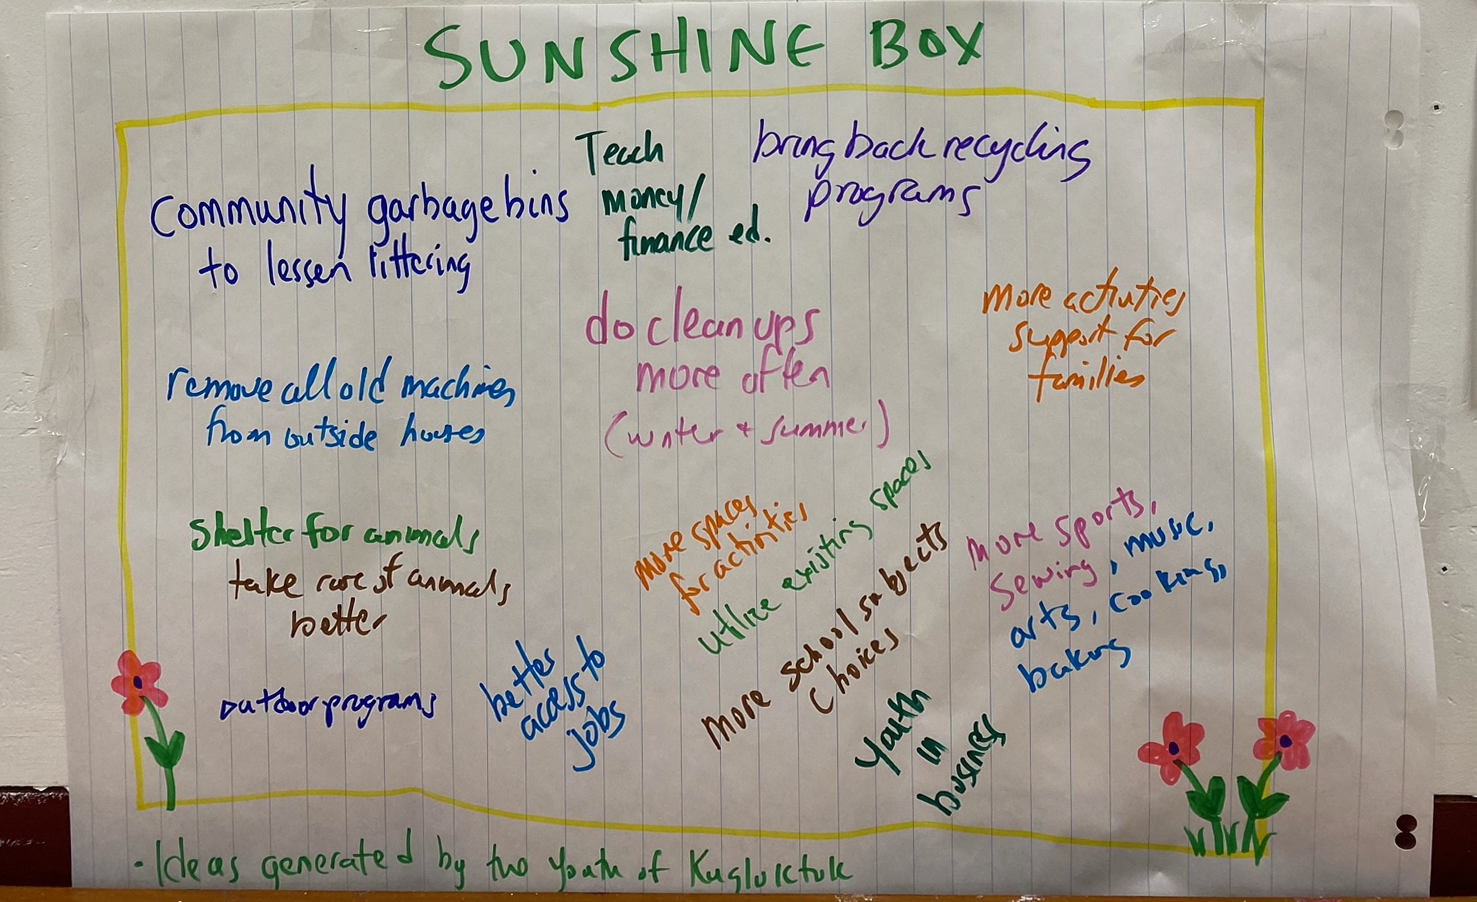 SUNSHINE BOX
Community garbage bins
to lessen littering
Teach
money/
finance ed.
bring back recycling
programs
do clean ups
more often
(winter + summer)
more activities
support for
families
remove all old machines
from outside houses
shelter for animals
take care of animals
better
more spaces
for activities
utilize existing spaces
more school subjects
choices
more sports,
sewing, music,
arts, cooking,
baking
outdoor programs
better
access to
jobs
Youth
in
business
- Ideas generated by two youth of Kugluktuk